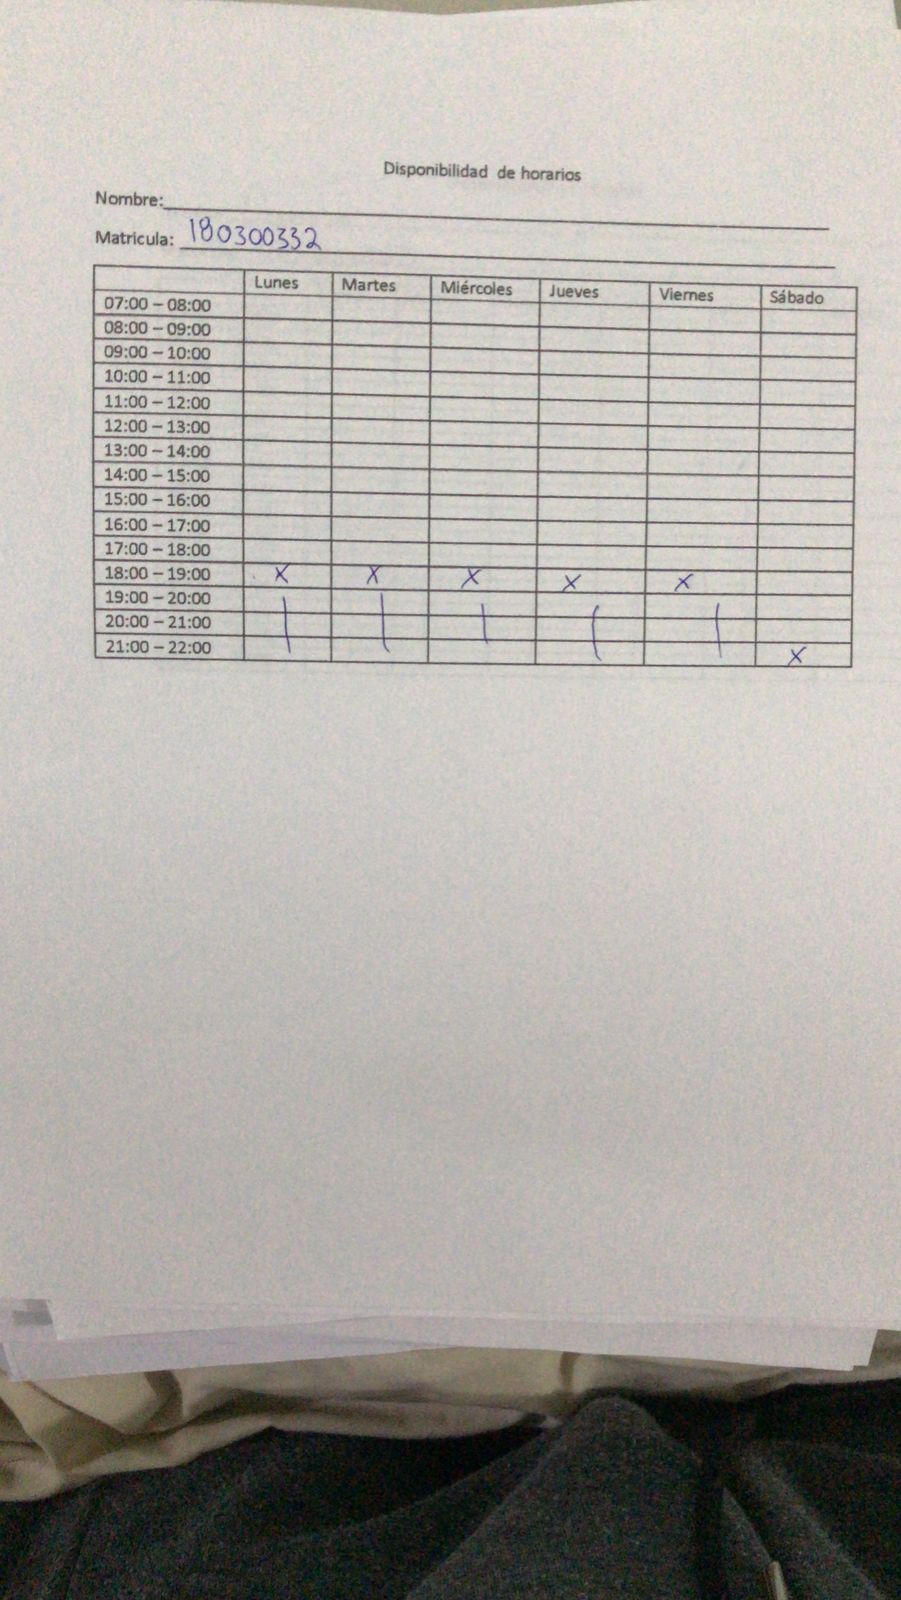 Disponibilidad de horarios
Nombre:
Matricula: 180300332
Lunes Martes Miércoles Jueves Viernes Sábado
07:00 – 08:00
08:00 – 09:00
09:00 – 10:00
10:00 – 11:00
11:00 – 12:00
12:00 – 13:00
13:00 – 14:00
14:00 – 15:00
15:00 – 16:00
16:00 – 17:00
17:00 – 18:00
18:00 – 19:00 X X X X X
19:00 – 20:00
20:00 – 21:00
21:00 – 22:00 X